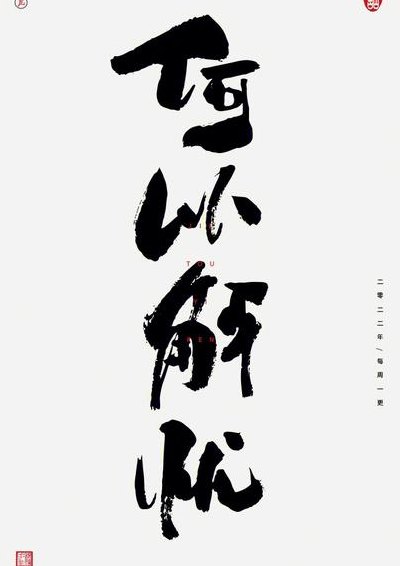 何以解忧
TOU
二零二二年/每周一更